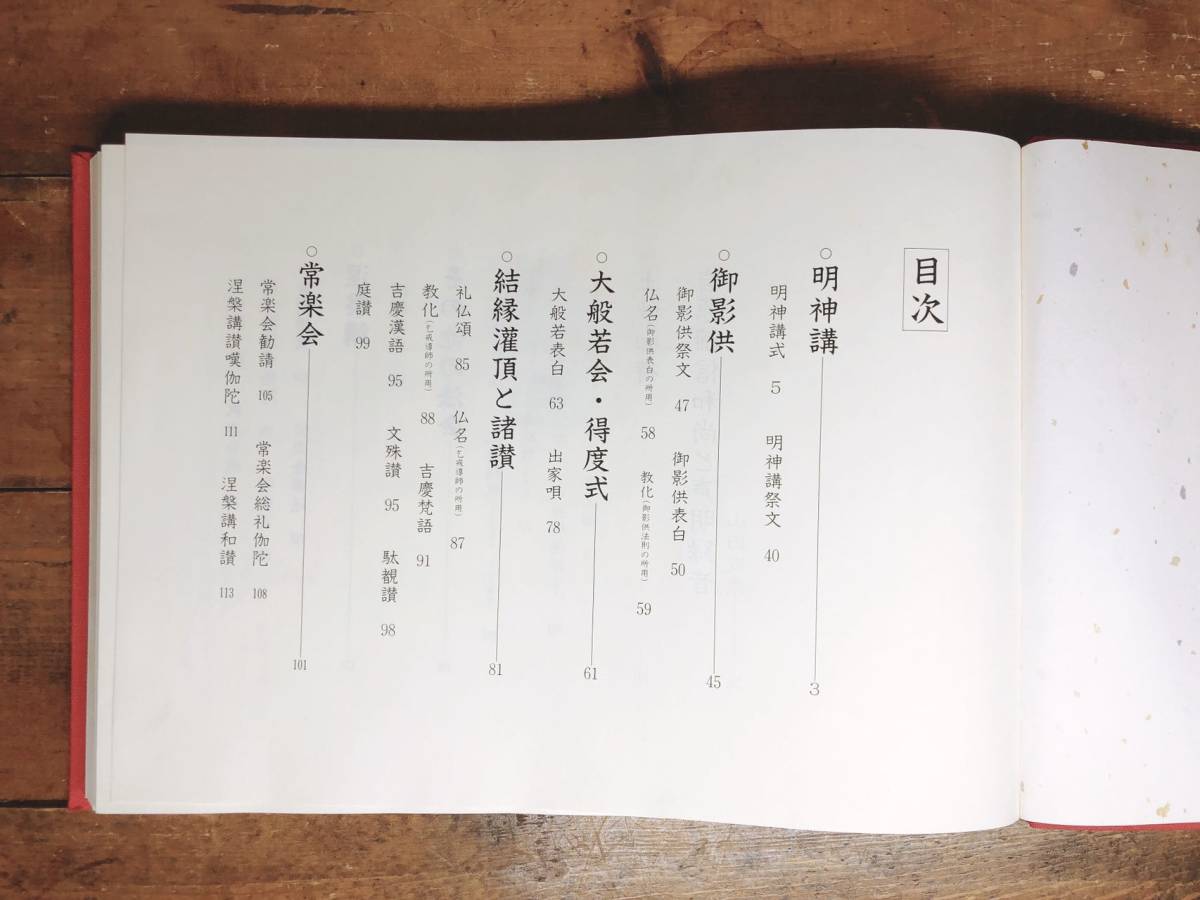 目次
○明神講 3
明神講式 5 明神講祭文 40
○御影供 45
御影供祭文 47 御影供表白 50
仏名(御影供表白の所用) 58 教化(御影供法則の所用) 59
○大般若会・得度式 61
大般若表白 63 出家唄 78
○結縁灌頂と諸讃 81
礼仏頌 85 仏名(乞戒導師の所用) 87
教化(乞戒導師の所用) 88 吉慶梵語 91
吉慶漢語 95 文殊讃 95 駄観讃 98
庭讃 99
○常楽会 101
常楽会勧請 105 常楽会総礼伽陀 108
涅槃講讃嘆伽陀 111 涅槃講和讃 113